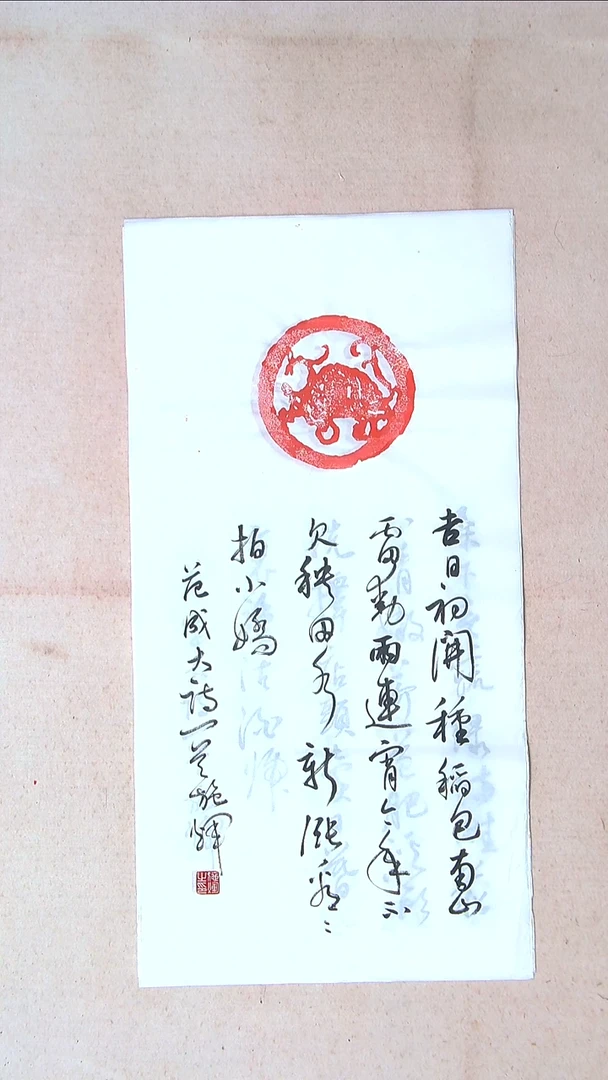 吉日初開種稻包南山
雷動雨連宵今年不
欠秧田水新漲看〻
拍小橋
范成大詩一首施輝